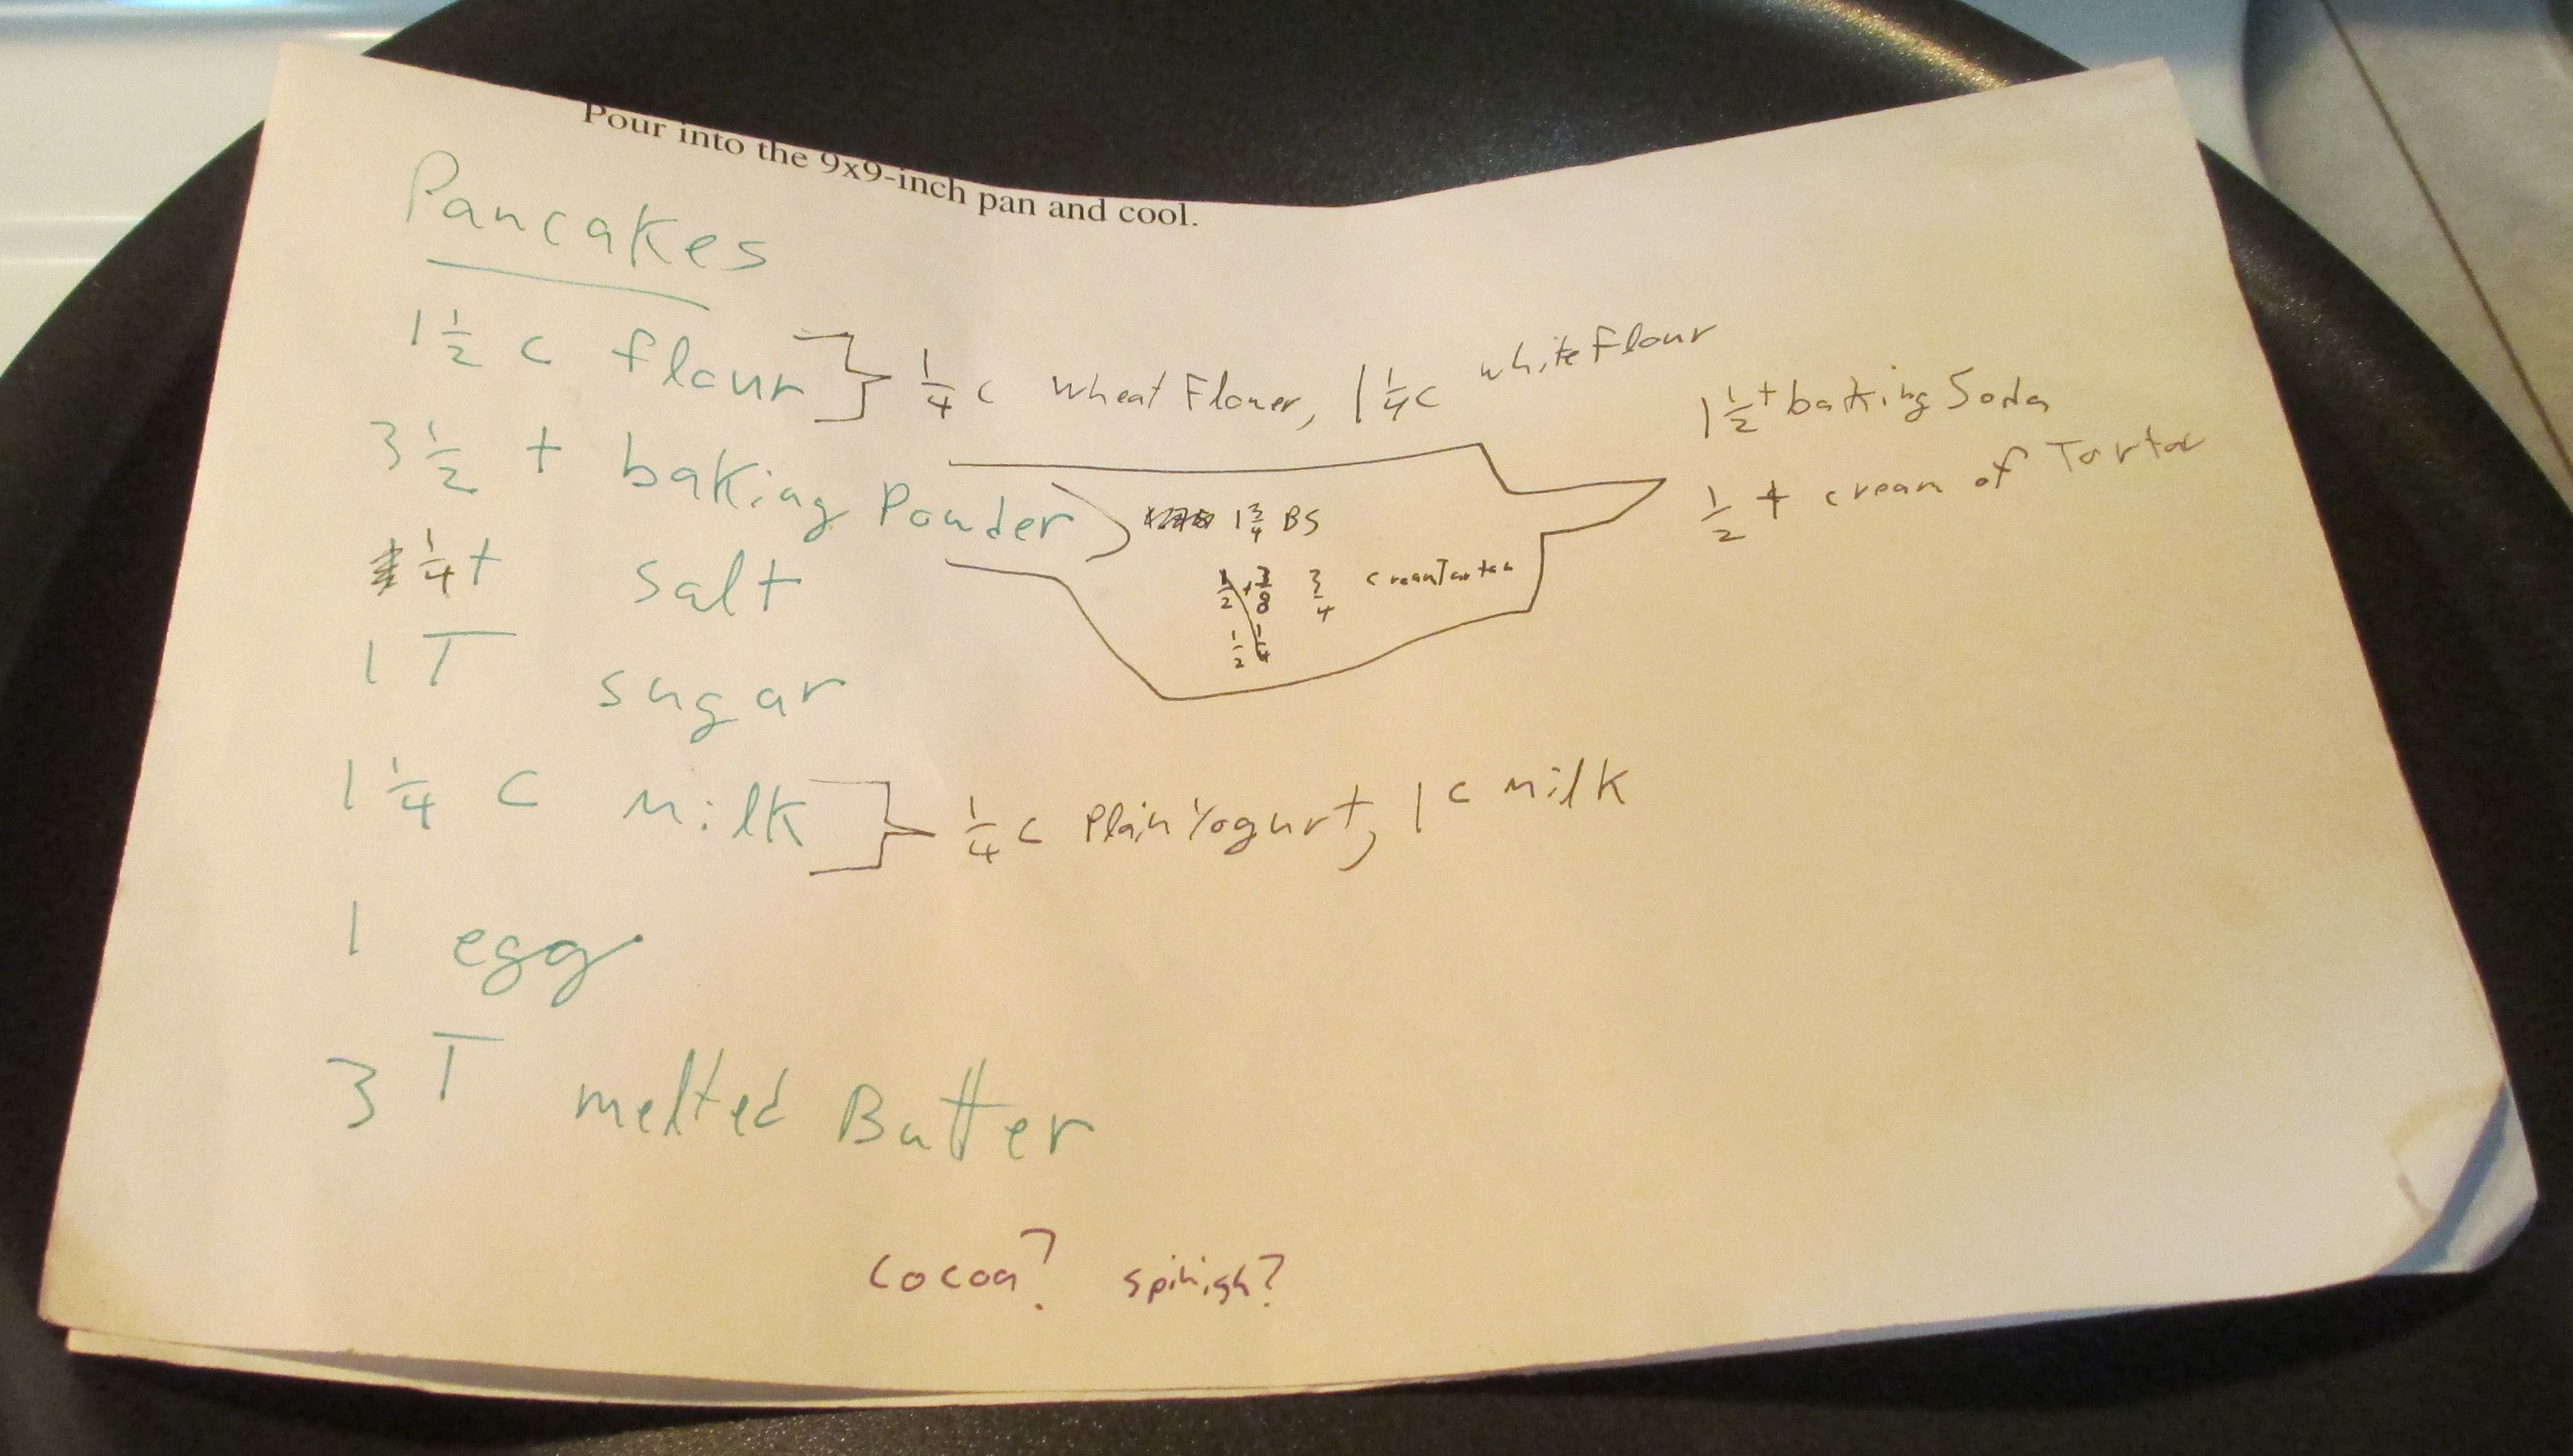 Pour into the 9x9-inch pan and cool.
Pancakes
1 1/2 c flour } 1/4 c wheat Flouer, 1 1/4 c white Flour
3 1/2 t baking Powder ) 1 3/4 BS
1/2 + 3/8 3/4 creanTartar
1/2 1/4
1 1/2 t baking Soda
1/2 t cream of Tartar
1/4 t salt
1 T sugar
1 1/4 c milk } 1/4 c Plain Yogurt, 1 c milk
1 egg
3 T melted Butter
cocoa? spinigh?